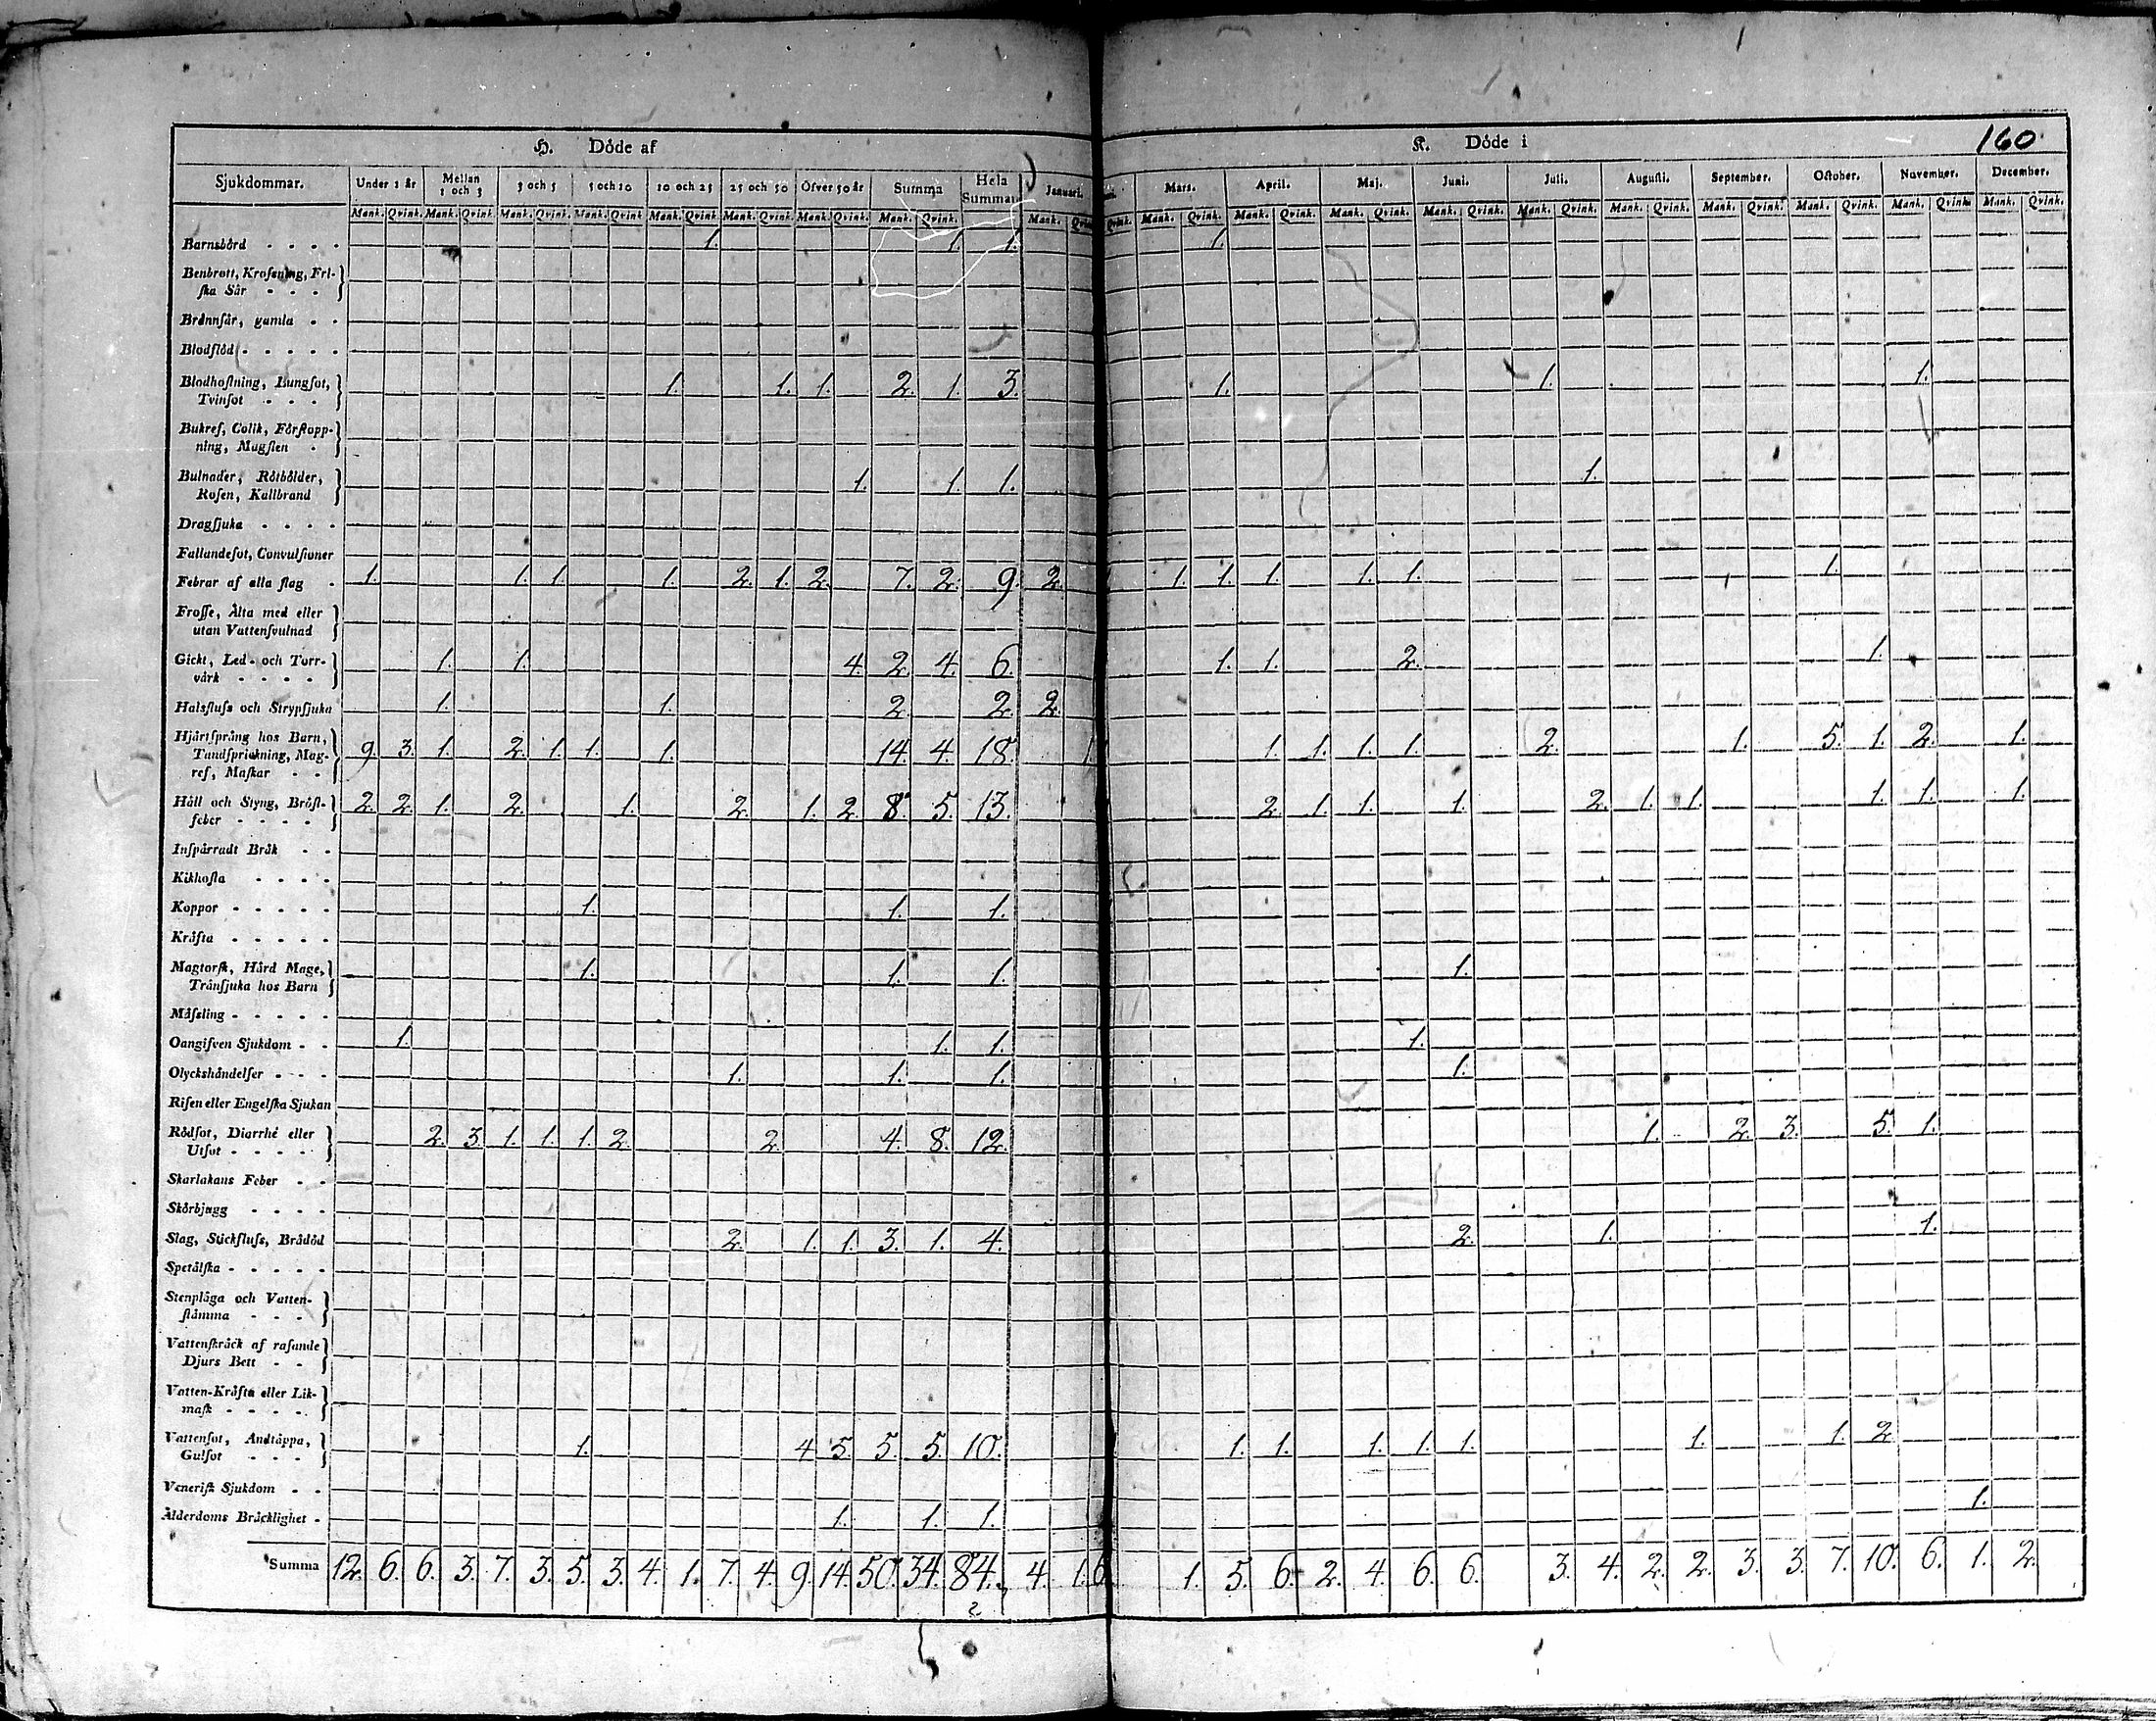 160
H. Döde af K. Döde i
Sjukdommar. Under 1 år Mellan 1 och 3 3 och 5 5 och 10 10 och 25 25 och 50 Öfver 50 år Summa Hela Summan Januari. Mars. April. Maj. Juni. Juli. Augusti. September. October. November. December.
Mank. Qvink. Mank. Qvink. Mank. Qvink. Mank. Qvink. Mank. Qvink. Mank. Qvink. Mank. Qvink. Mank. Qvink. Mank. Qvink. Mank. Qvink. Mank. Qvink. Mank. Qvink. Mank. Qvink. Mank. Qvink. Mank. Qvink. Mank. Qvink. Mank. Qvink. Mank. Qvink. Mank. Qvink.
Barnsbörd 1. 1. 1. 1.
Benbrott, Krosening, Fri-
ska Sår
Brännsår, gamla
Blodflöd
Blodhostning, Lungsot,
Tvinsot 1. 1. 1. 2. 1. 3. 1. 1. 1.
Bukref, Colik, Förstopp-
ning, Magsten
Bulnader, Rötbölder,
Rosen, Kallbrand 1. 1. 1. 1.
Dragsjuka
Fallandesot, Convulsioner
Febrar af alla slag 1. 1. 1. 1. 2. 1. 2. 7. 2. 9. 2. 1. 1. 1. 1. 1. 1.
Frosse, Älta med eller
utan Vattensvulnad
Gickt, Led- och Torr-
värk 1. 1. 4. 2. 4. 6. 1. 1. 2. 1.
Halsfluss och Strypsjuka 1. 1. 2. 2. 2.
Hjärtsprång hos Barn,
Tandsprickning, Mag-
ref, Maskar 9. 3. 1. 2. 1. 1. 1. 14. 4. 18. 1. 1. 1. 1. 1. 2. 1. 5. 1. 2. 1.
Håll och Styng, Bröst-
feber 2. 2. 1. 2. 1. 2. 1. 2. 8. 5. 13. 2. 1. 1. 1. 2. 1. 1. 1. 1. 1.
Inspärradt Bråk
Kikhosta
Koppor 1. 1. 1.
Kräfta
Magtorsk, Hård Mage,
Trånsjuka hos Barn 1. 1. 1. 1.
Mässling
Oangifven Sjukdom 1. 1. 1. 1.
Olyckshändelser 1. 1. 1. 1.
Risen eller Engelska Sjukan
Rödsot, Diarrhé eller
Utsot 2. 3. 1. 1. 1. 2. 2. 4. 8. 12. 1. 2. 3. 5. 1.
Skarlakans Feber
Skörbjugg
Slag, Stickfluss, Brådöd 2. 1. 1. 3. 1. 4. 2. 1. 1.
Spetälska
Stenplåga och Vatten-
stämma
Vattenskräck af rasande
Djurs Bett
Vatten-Kräfta eller Lik-
mask
Vattensot, Andtäppa,
Gulsot 1. 4 5. 5. 5. 10. 1. 1. 1. 1. 1. 1. 1. 2.
Venerisk Sjukdom
Ålderdoms Bräcklighet 1. 1. 1. 1.
Summa 12. 6. 6. 3. 7. 3. 5. 3. 4. 1. 7. 4. 9. 14. 50. 34. 84. 4. 1. 6. 1. 5. 6. 2. 4. 6. 6. 3. 4. 2. 2. 3. 3. 7. 10. 6. 1. 2.